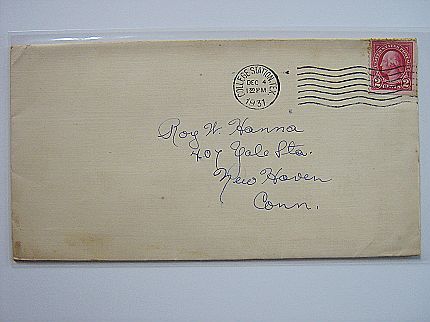 COLLEGE STATION, TEX.
DEC 4
12 PM
1931
2 2
Roy W. Hanna
407 Yale Sta.
New Haven
Conn.